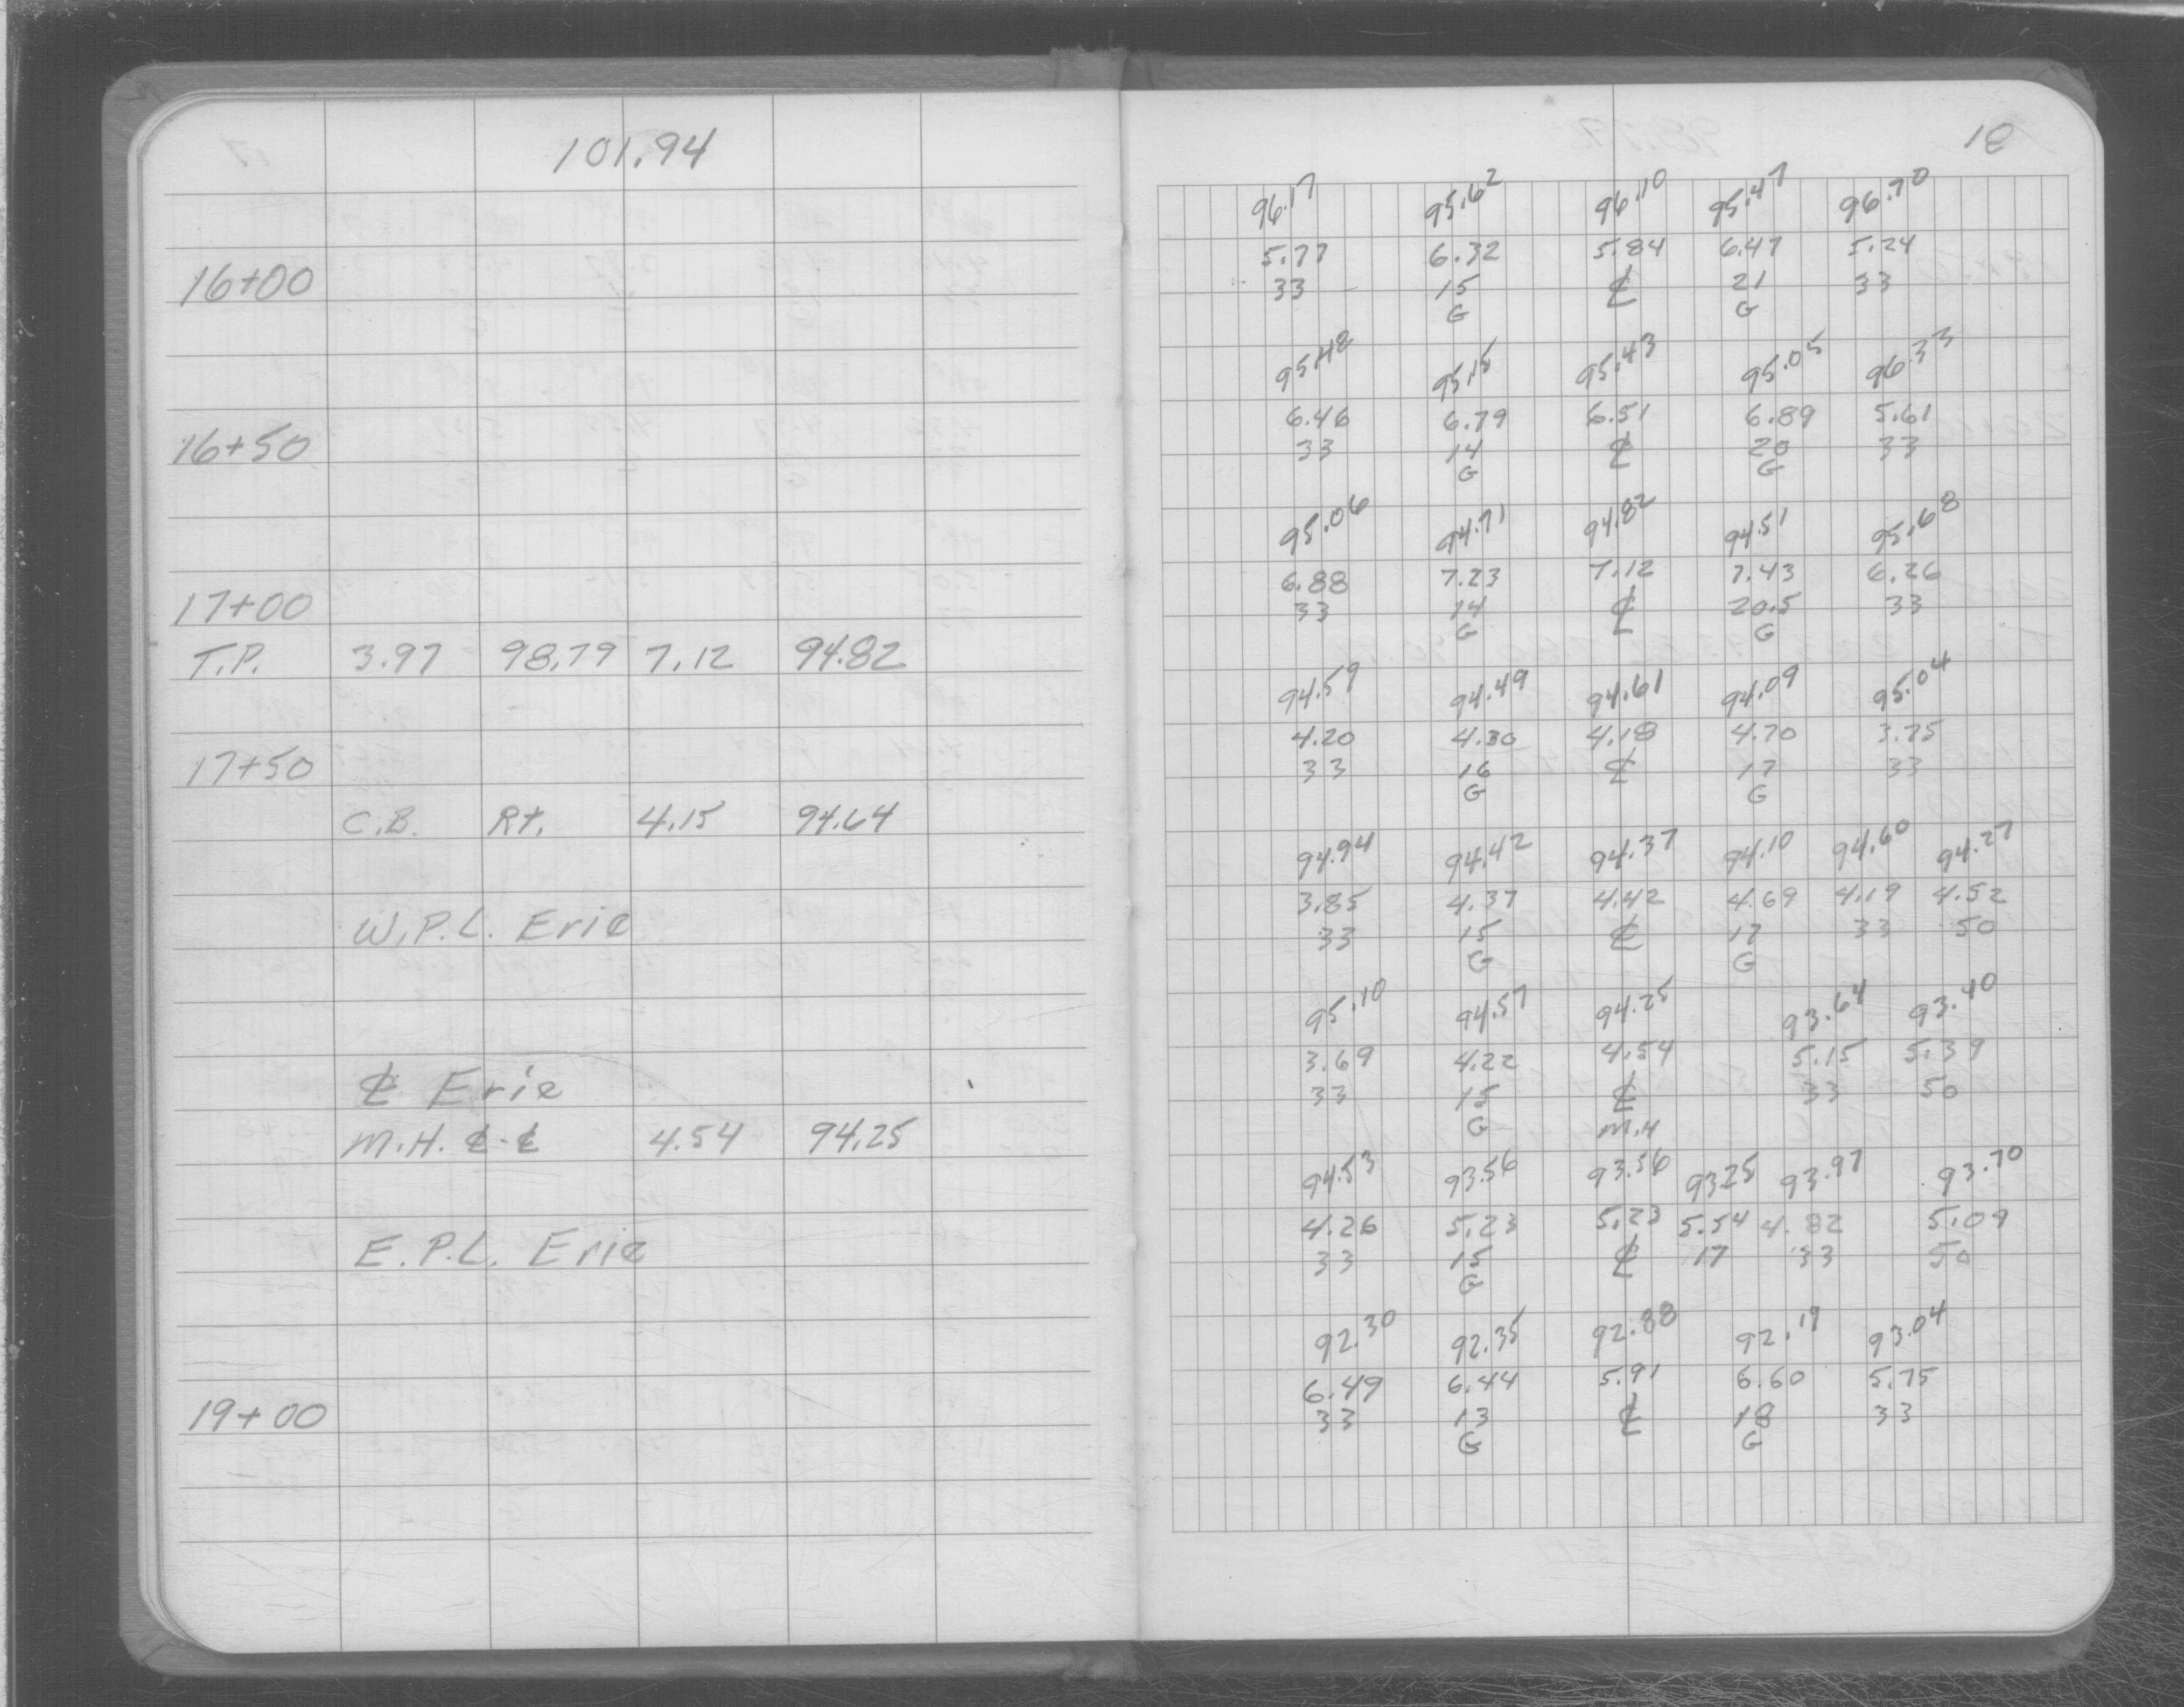 101.94
16+00
16+50
17+00
T.P. 3.97 98.79 7.12 94.82
17+50
C.B. Rt. 4.15 94.64
W.P.L. Erie
℄ Erie
M.H. ℄-℄ 4.54 94.25
E.P.L. Erie
19+00
18
96.17 95.62 96.10 95.47 96.70
5.77 6.32 5.84 6.47 5.24
33 15 ℄ 21 33
G G
95.48 95.15 95.43 95.05 96.33
6.46 6.79 6.51 6.89 5.61
33 14 ℄ 20 33
G G
95.06 94.71 94.82 94.51 95.68
6.88 7.23 7.12 7.43 6.26
33 14 ℄ 20.5 33
G G
94.59 94.49 94.61 94.09 95.04
4.20 4.30 4.18 4.70 3.75
33 16 ℄ 17 33
G G
94.94 94.42 94.37 94.10 94.60 94.27
3.85 4.37 4.42 4.69 4.19 4.52
33 15 ℄ 17 33 50
G G
95.10 94.57 94.25 93.64 93.40
3.69 4.22 4.54 5.15 5.39
33 15 ℄ 33 50
G M.H
94.53 93.56 93.56 93.25 93.97 93.70
4.26 5.23 5.23 5.54 4.82 5.09
33 15 ℄ 17 33 50
G
92.30 92.35 92.88 92.19 93.04
6.49 6.44 5.91 6.60 5.75
33 13 ℄ 18 33
G G